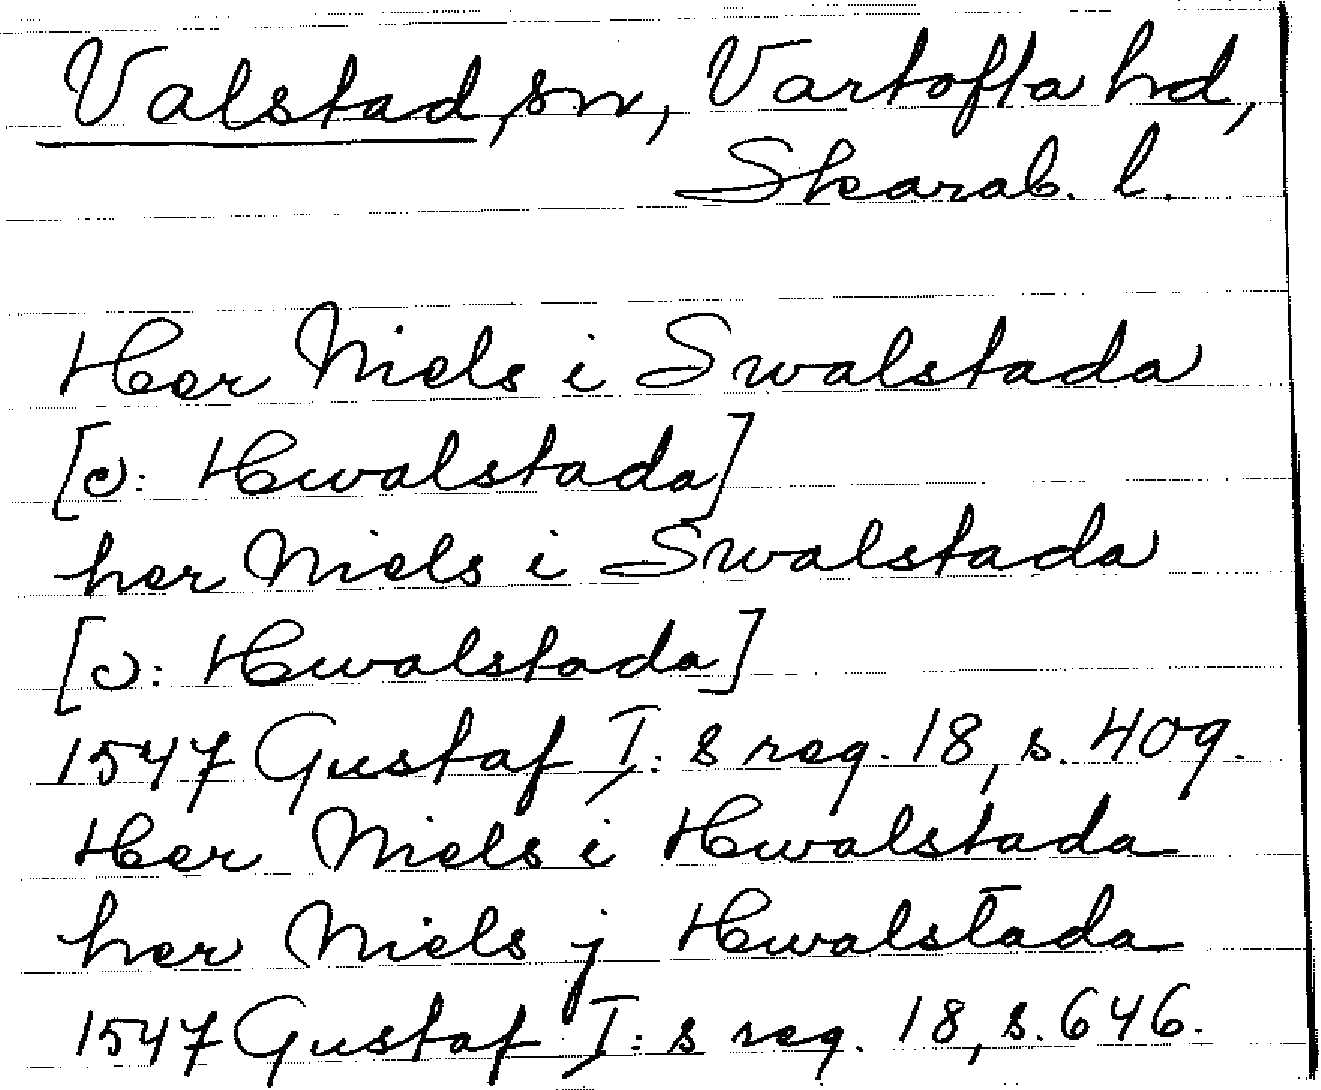 Valstad, sn, Vartofta hd,
Skarab. l.
Her Niels i Swalstada
[ɔ: Hwalstada]
her Niels i Swalstada
[ɔ: Hwalstada]
1547 Gustaf I:s reg. 18, s. 409.
Her Niels i Hwalstada
her Niels j Hwalstada
1547 Gustaf I:s reg. 18, s. 646.